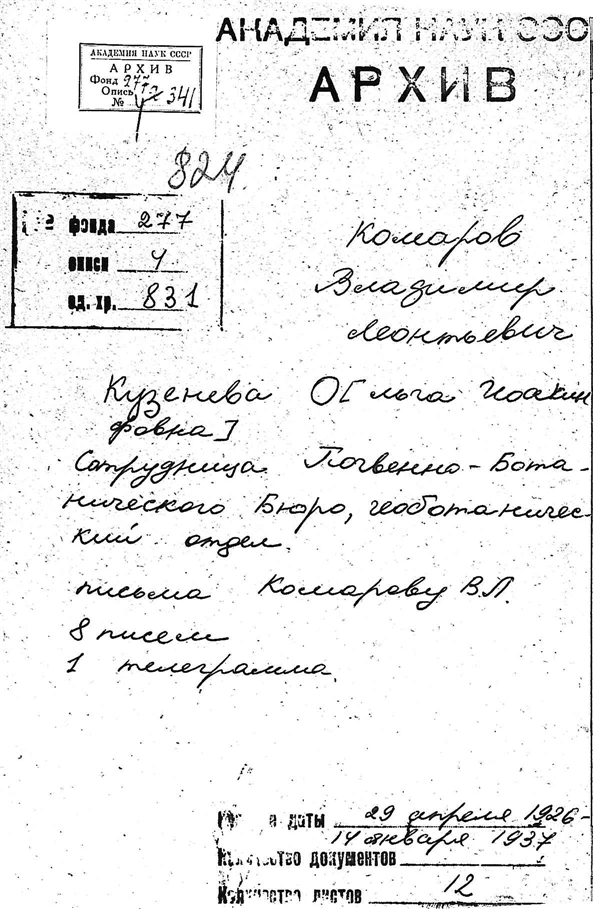 АКАДЕМИЯ НАУК ССС
АРХИВ
АКАДЕМИЯ НАУК СССР
АРХИВ
Фонд 277
Опись
№ 341
824
фонда 277
описи 4
ед. хр. 831
Комаров
Владимир
Леонтьевич
Кузенева О[льга Иоакин
фовна]
Сотрудница Почвенно-Бота-
нического Бюро, геоботаничес-
кий отдел.
письма Комарову В.Л.
8 писем
1 телеграмма.
даты 29 апреля 1926-
14 января 1937
Количество документов
Количество листов 12